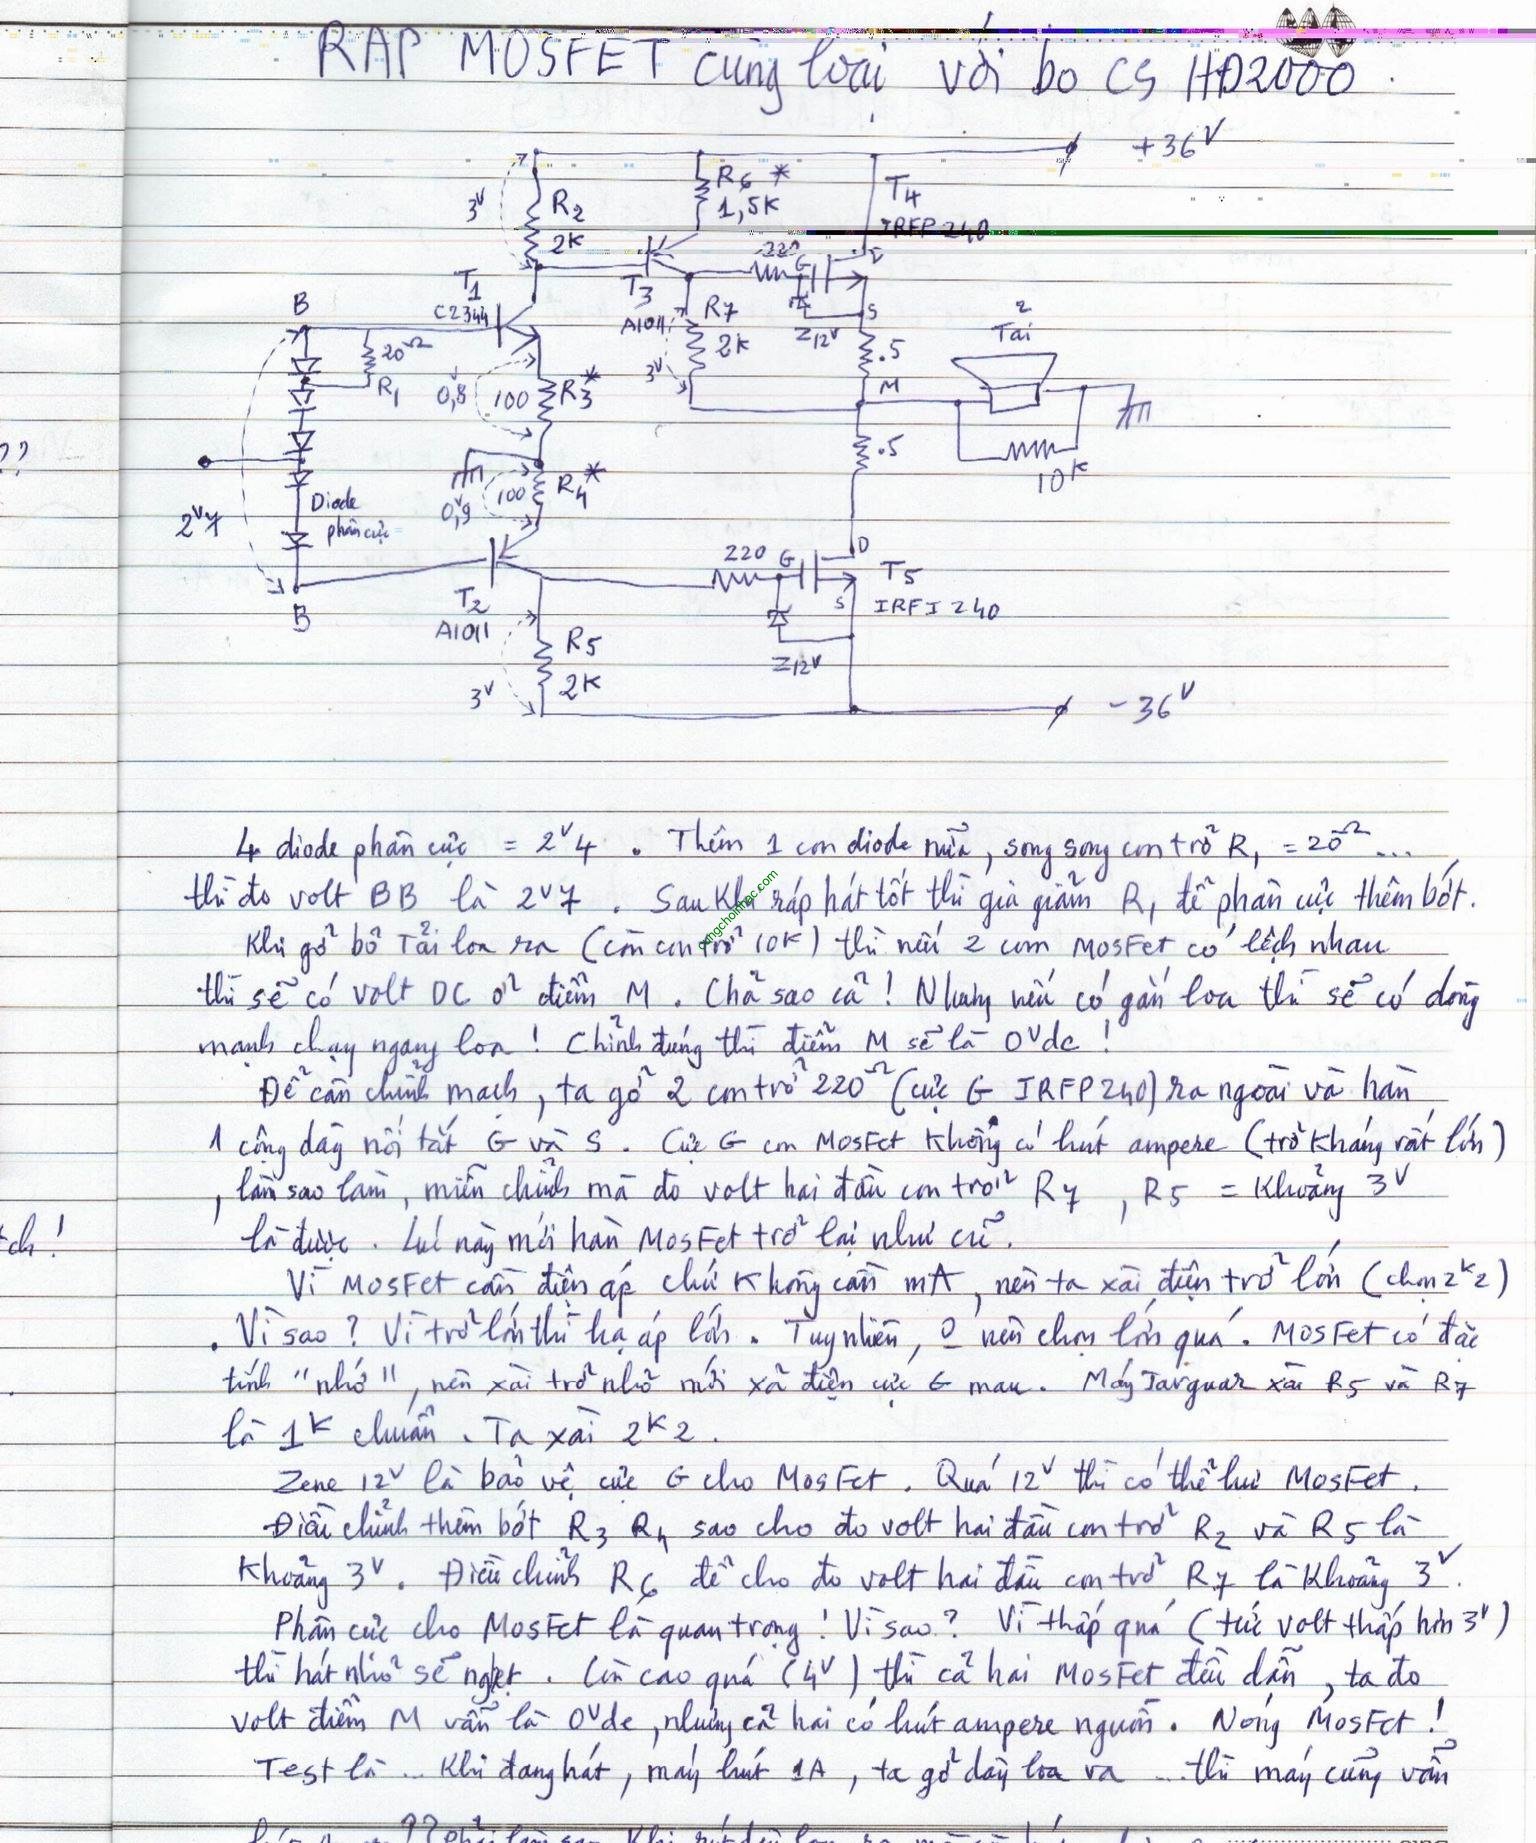 RÁP MOSFET cùng loại với bo CS HD2000.
+36V
R6 *
1,5K
T4
IRFP 240
3V
R2
2K
220
G
D
T1
C2344
T3
A1011
R7
2K
Z12V
S
.5
Tải
B
20Ω
R1
0,8V
100
R3*
3V
M
??
.5
10K
100
R4*
0,9V
2V7
Diode
phân cực
220
G
D
T5
IRFI 240
S
B
T2
A1011
R5
2K
Z12V
3V
-36V
4 diode phân cực = 2V4. Thêm 1 con diode nữa, song song con trở R1 = 20Ω ...
thì đo volt BB là 2V7. Sau khi ráp hát tốt thì gia giảm R1 để phân cực thêm bớt.
congchoinhac.com
Khi gỡ bỏ Tải loa ra (còn con trở 10K) thì nếu 2 con MosFet có lệch nhau
thì sẽ có volt DC ở điểm M. Chả sao cả! Nhưng nếu có gắn loa thì sẽ có dòng
mạnh chạy ngang loa! Chỉnh đúng thì điểm M sẽ là 0Vdc!
Để cân chỉnh mạch, ta gỡ 2 con trở 220Ω (cực G IRFP240) ra ngoài và hàn
1 cọng dây nối tắt G và S. Cực G con MosFet không có hút ampere (trở kháng rất lớn)
, làm sao làm, miễn chỉnh mà đo volt hai đầu con trở R7, R5 = khoảng 3V
tch!
là được. Lúc này mới hàn MosFet trở lại như cũ.
Vì MosFet cần điện áp chứ không cần mA, nên ta xài điện trở lớn (chọn 2K2)
. Vì sao? Vì trở lớn thì hạ áp lớn. Tuy nhiên, 0 nên chọn lớn quá. MosFet có đặc
tính "nhớ", nên xài trở nhỏ mới xả điện cực G mau. Máy Jarguar xài R5 và R7
là 1K chuẩn. Ta xài 2K2.
Zene 12V là bảo vệ cực G cho MosFet. Quá 12V thì có thể hư MosFet.
Điều chỉnh thêm bớt R3 R4 sao cho đo volt hai đầu con trở R2 và R5 là
khoảng 3V. Điều chỉnh R6 để cho đo volt hai đầu con trở R7 là khoảng 3V.
Phân cực cho MosFet là quan trọng! Vì sao? Vì thấp quá (tức volt thấp hơn 3V)
thì hát nhỏ sẽ nghẹt. Còn cao quá (4V) thì cả hai MosFet đều dẫn, ta đo
volt điểm M vẫn là 0Vdc, nhưng cả hai có hút ampere nguồn. Nóng MosFet!
Test là ... Khi đang hát, máy hút 1A, ta gỡ dây loa ra ... thì máy cũng vẫn